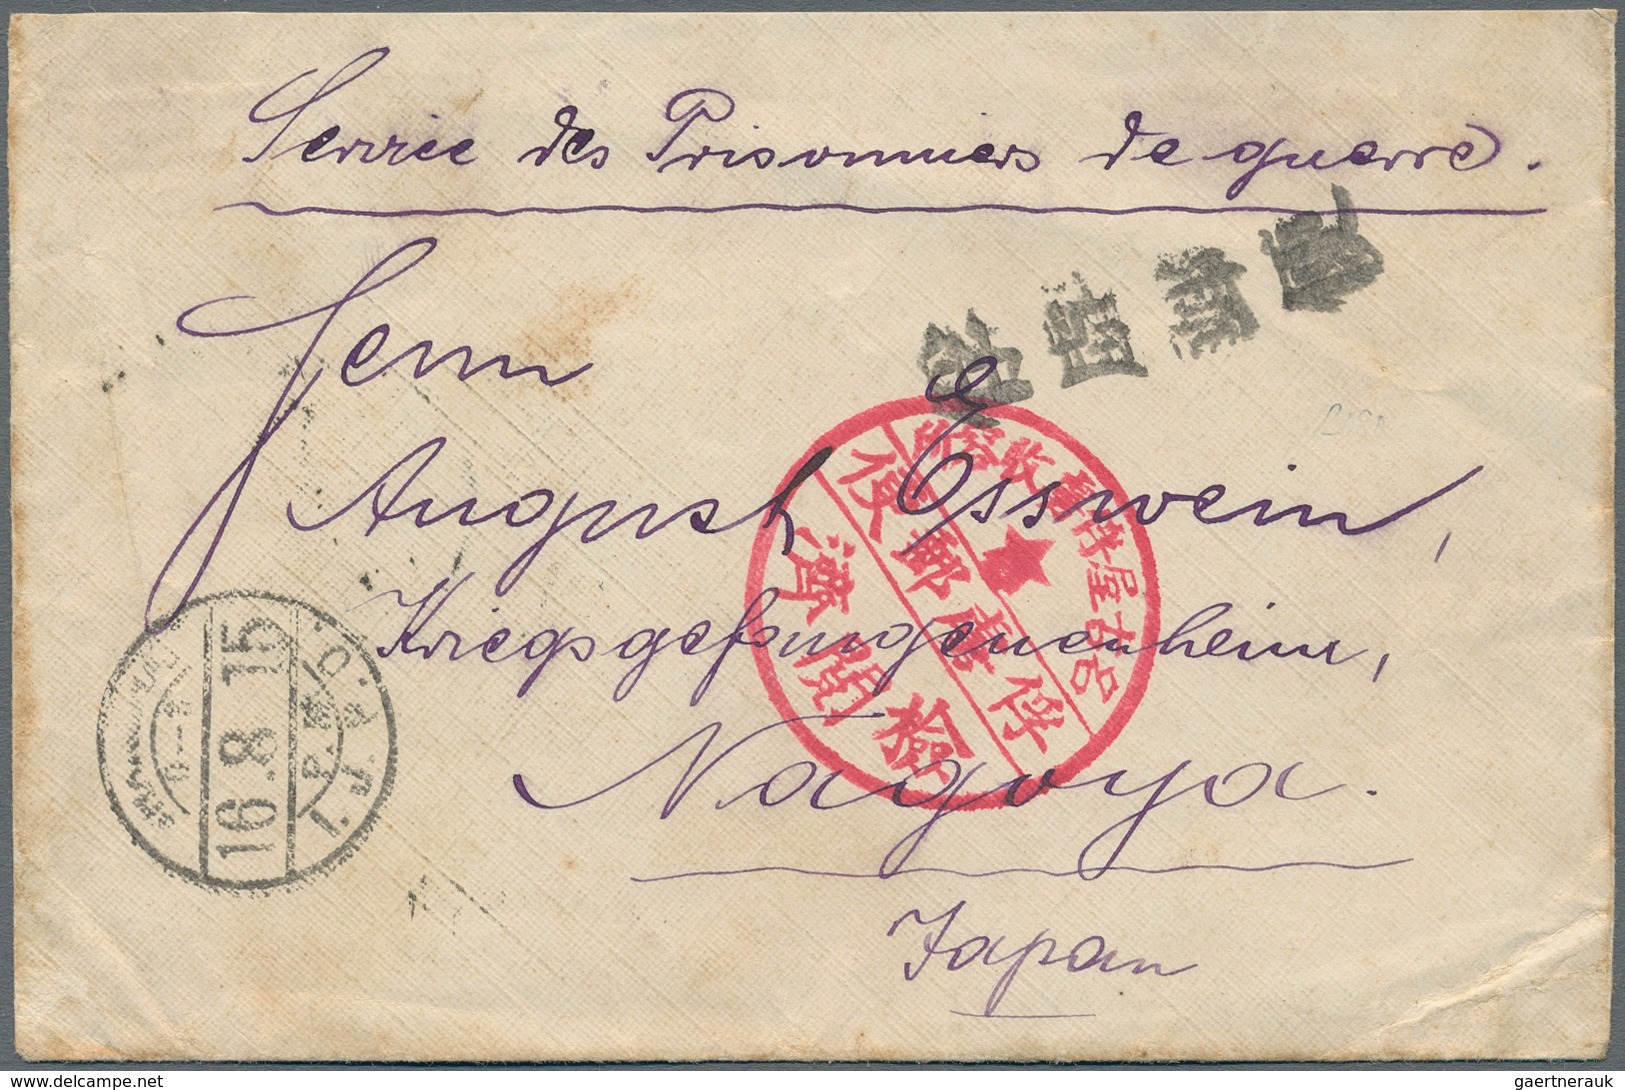 Service des Prisonniers de guerre.
Herrn
August Esswein,
Kriegsgefangenenheim,
Nagoya.
Japan
名古屋俘虜收容所
俘虜郵便
檢閲濟
16.8.15
I.J.P.O.
gaertnerauk
www.delcampe.net